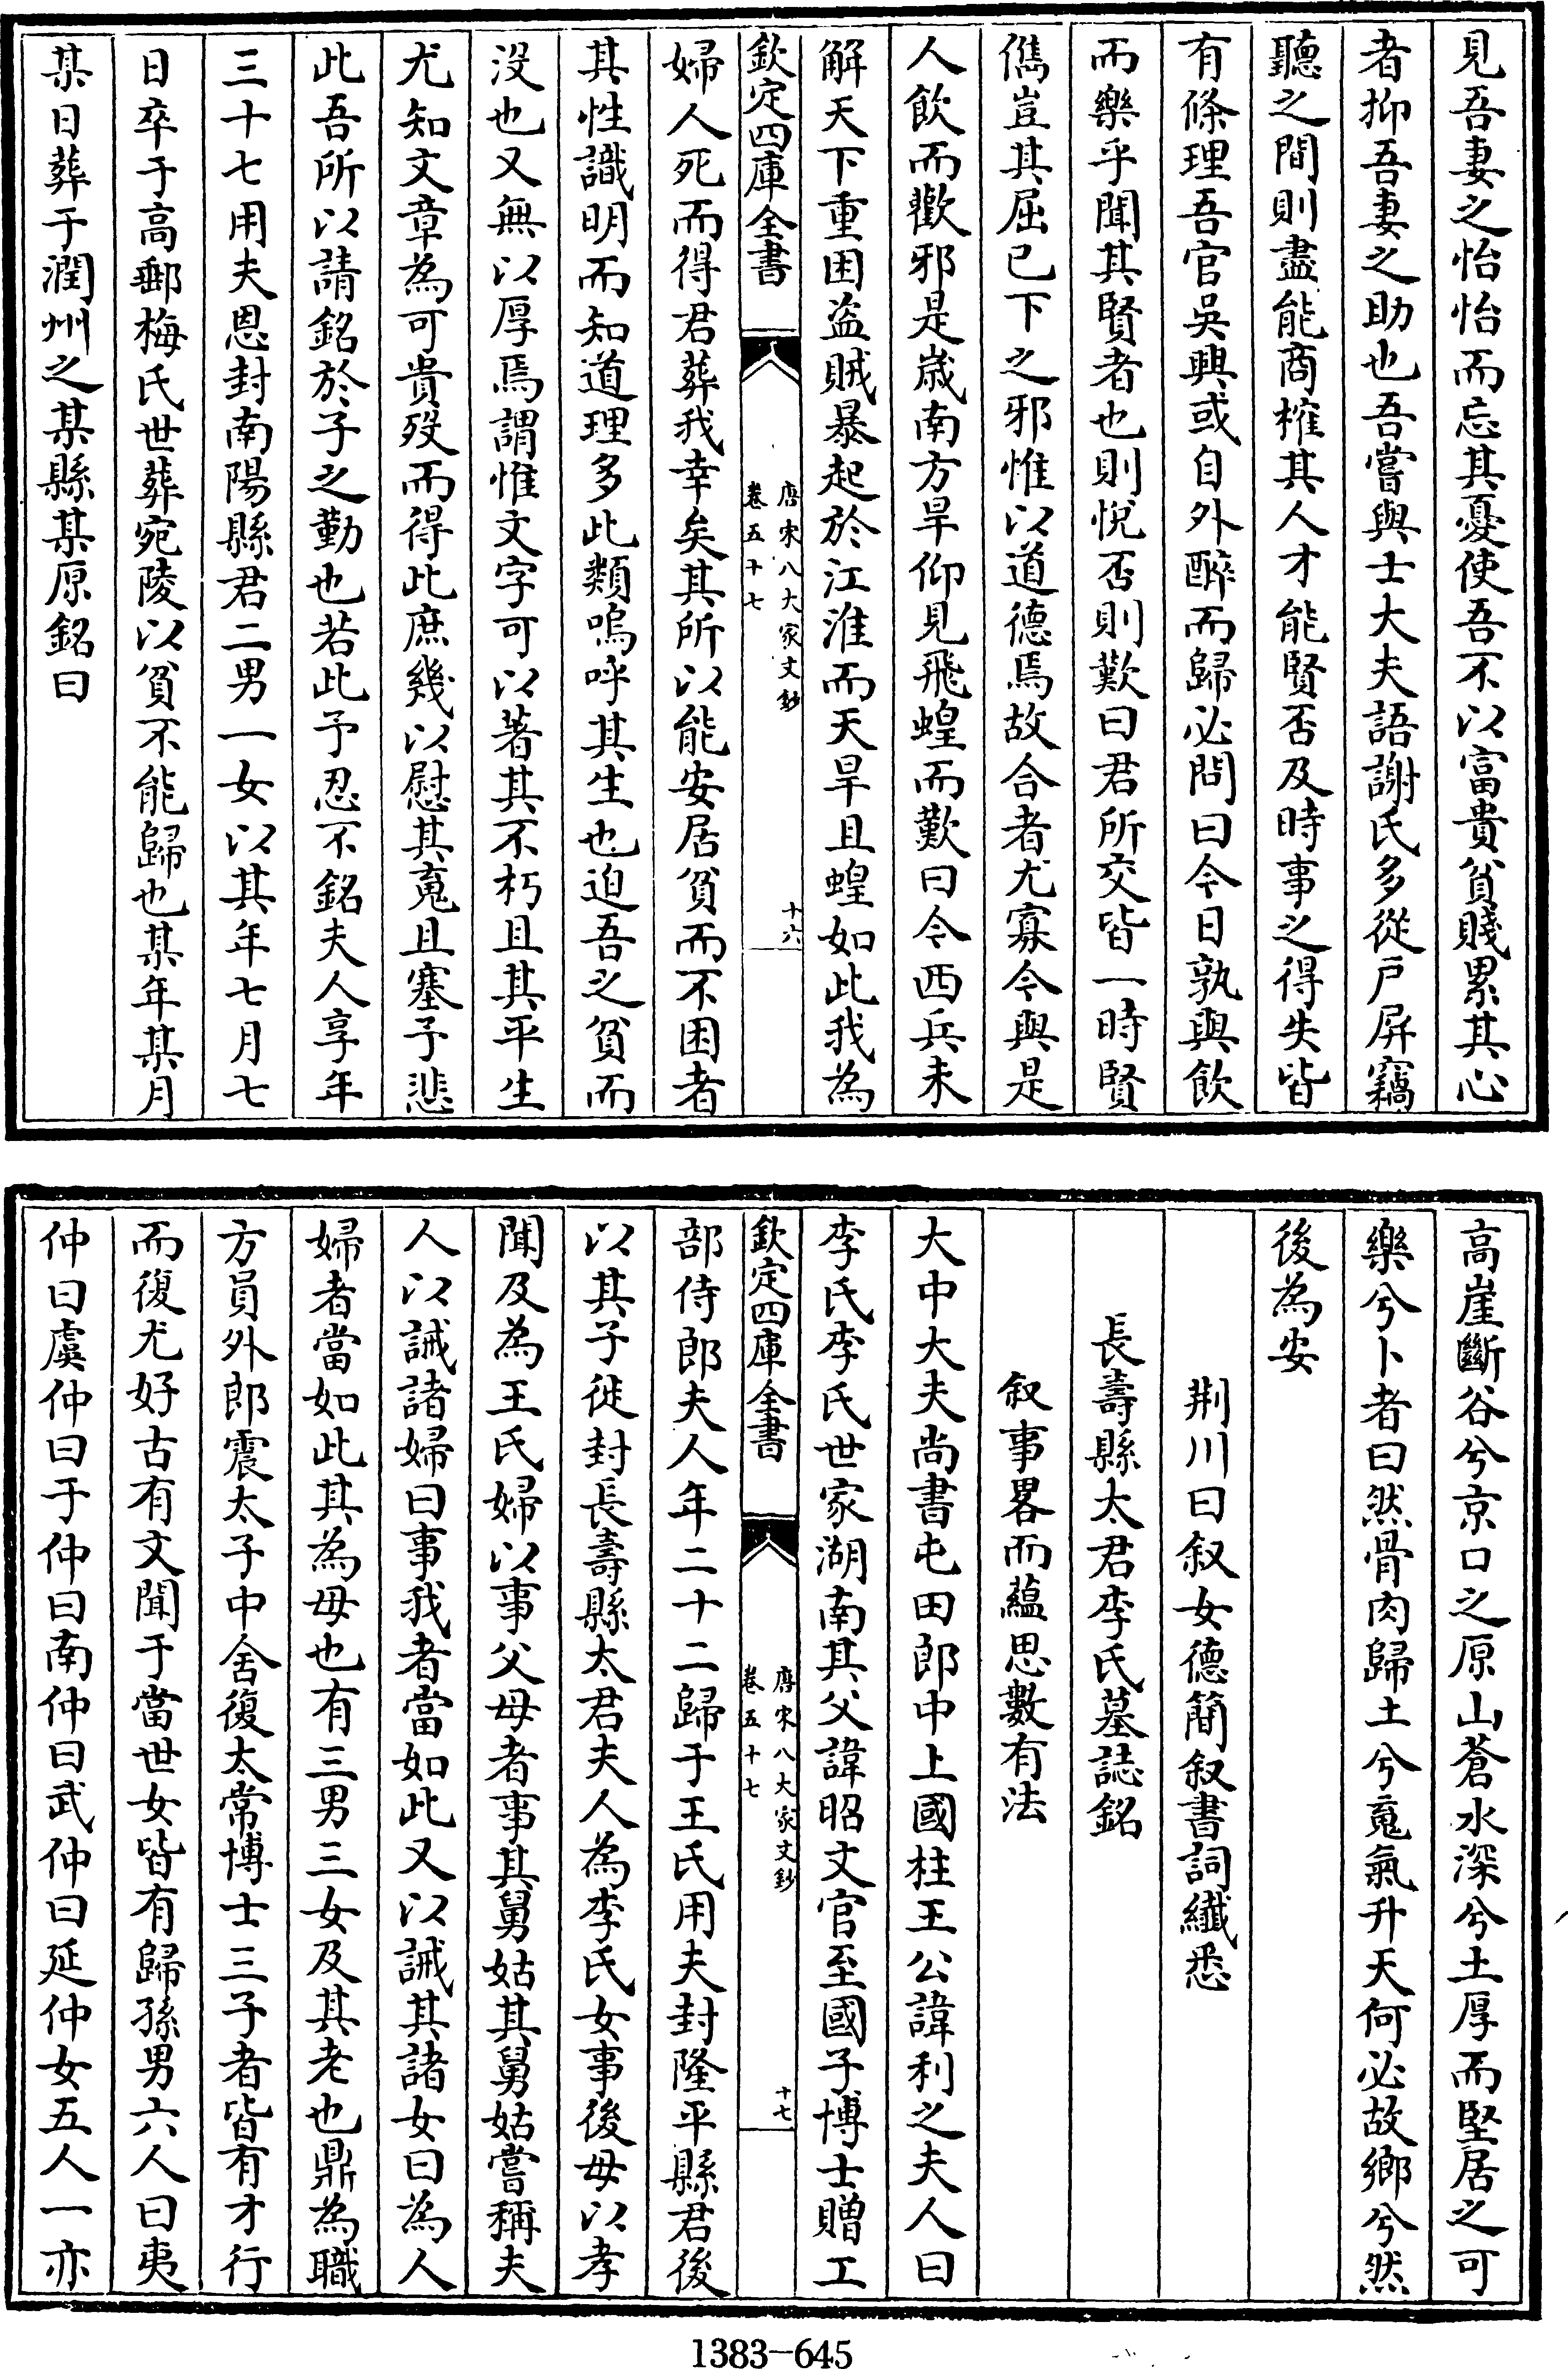 見吾妻之怡怡而忘其憂使吾不以富貴貧賤累其心
者抑吾妻之助也吾嘗與士大夫語謝氏多從戸屏竊
聽之間則盡能商榷其人才能賢否及時事之得失皆
有條理吾官吳興或自外醉而歸必問曰今日孰與飲
而樂乎聞其賢者也則悅否則歎曰君所交皆一時賢
儁豈其屈已下之邪惟以道德焉故合者尤寡今與是
人飲而歡邪是歲南方旱仰見飛蝗而歎曰今西兵未
解天下重困盜賊暴起於江淮而天旱且蝗如此我為
欽定四庫全書
唐宋八大家文鈔
卷五十七
十六
婦人死而得君葬我幸矣其所以能安居貧而不困者
其性識明而知道理多此類嗚呼其生也迫吾之貧而
沒也又無以厚焉謂惟文字可以著其不朽且其平生
尤知文章為可貴歿而得此庶幾以慰其䰟且塞予悲
此吾所以請銘於子之勤也若此予忍不銘夫人享年
三十七用夫恩封南陽縣君二男一女以其年七月七
日卒于高郵梅氏世葬宛陵以貧不能歸也某年某月
某日葬于潤州之某縣某原銘曰
高崖斷谷兮京口之原山蒼水深兮土厚而堅居之可
樂兮卜者曰然骨肉歸土兮䰟氣升天何必故鄉兮然
後為安
荆川曰叙女德簡叙書詞纖悉
長壽縣太君李氏墓誌銘
叙事畧而蘊思數有法
大中大夫尚書屯田郎中上國柱王公諱利之夫人曰
李氏李氏世家湖南其父諱昭文官至國子博士贈工
欽定四庫全書
唐宋八大家文鈔
卷五十七
十七
部侍郎夫人年二十二歸于王氏用夫封隆平縣君後
以其子徙封長壽縣太君夫人為李氏女事後母以孝
聞及為王氏婦以事父母者事其舅姑其舅姑嘗稱夫
人以誡諸婦曰事我者當如此又以誡其諸女曰為人
婦者當如此其為母也有三男三女及其老也鼎為職
方員外郎震太子中舍復太常博士三子者皆有才行
而復尤好古有文聞于當世女皆有歸孫男六人曰夷
仲曰虞仲曰于仲曰南仲曰武仲曰延仲女五人一亦
1383-645